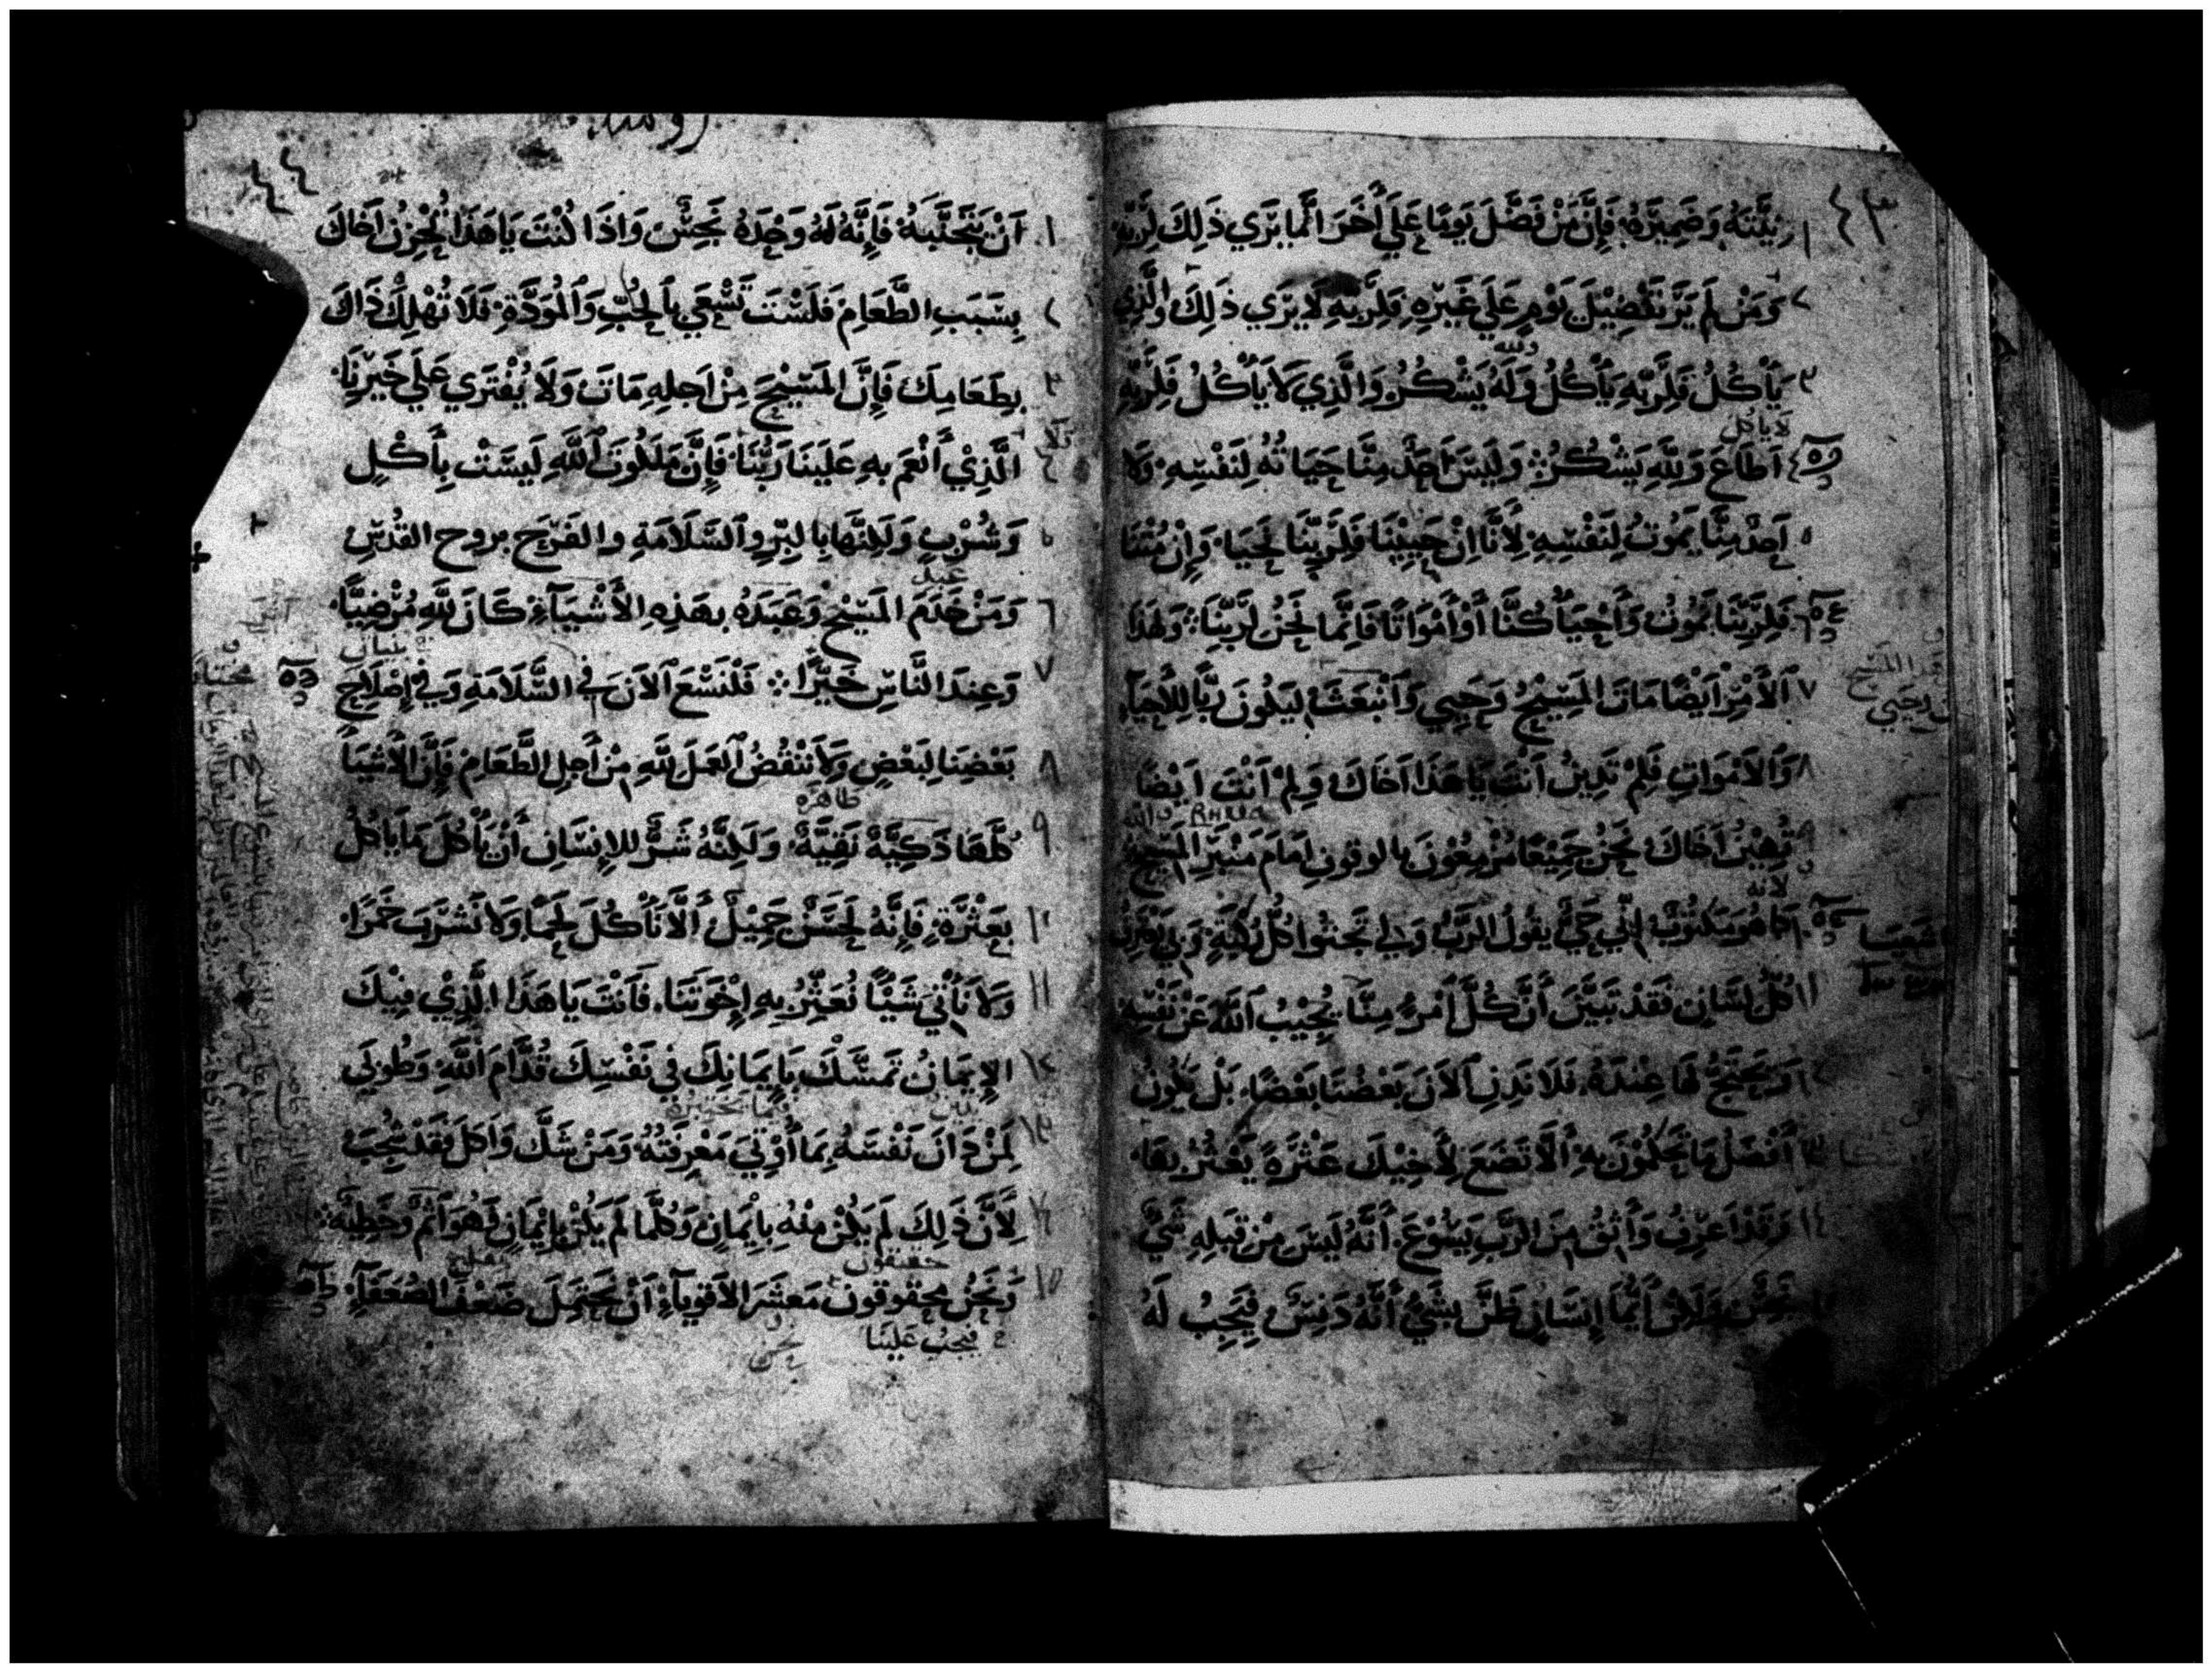 ٤٣
١ نِيَّتهُ وَضَمِيرَهُ فَإِنَّ مَنْ فَضَّلَ يَومًا عَلَي أَخَرَ انَّما يَرَي ذَلِكَ لِرَبِّهِ
٢ وَمَنْ لَم يَرَ تَفْضِيْلَ يَوْمٍ عَلَي غَيْرِهِ فَلِرَبِّهِ لَا يَرَي ذَلِكَ وَالَّذِي
ولله
٣ يَأكُلُ فَلِرَبِّهِ يَأكُلُ وَلَهُ يَشْكُرُ وَالَّذِي لَا يَأْكُلُ فَلِرَبِّهِ
لا ياكل
٤ اَطَاعَ وَلِلَّهِ يَشْكُرُ وَلَيسَ اَحَدٌ مِنَّا حَيَاتُهُ لِنَفْسِهِ وَلا
٥ اَحَدٌ مِنَّا يَمُوتُ لِنَفْسِهِ لِأَنَّا اِنْ حَيِيْنَا فَلِرَبِّنَا نَحيَا وَإِنْ مُتْنَا
٦ فَلِرَبِّنَا نَمُوتُ وَأَحْيَاً كُنَّا أَوْ أَمْوَاتًا فَانَّمَا نَحْنُ لِرَبِّنَا وَلِهَذَا
٧ الأَمْرِ اَيْضًا مَاتَ المَسِيْحُ وَحَيِي وَانْبَعَثَ لِيَكُونَ رَبًّا لِلأَحيَآءِ
٨ وَالأَمْوَاتِ فَلِمْ تَدِينُ اَنْتَ يَا هَذَا اَخَاكَ وَلِمْ اَنْتَ اَيْضَا
٩ تُهِيْنُ اَخَاكَ نَحْنُ جَمِيْعًا مُزْمِعُوْنَ بالوقوفِ اِمَامَ مِنْبَرِ المَسِيْحِ
لانه
١٠ كَمَا هُوَ مَكتُوْبٌ اِنِّي حَيٌّ يَقُولُ الرَّبُّ وَلِي تَجثوا كُلُّ رُكْبَةٍ وَبِي يَعْتَرِفُ
اشعيا
١١ كُلُّ لِسَانٍ فَقَدْ تَبَيَّنَ أَنَّ كُلَّ أَمْرءٍ مِنَّا يُجِيْبُ اللَّهَ عَنْ نَفْسِهِ
١٢ وَيَحْتَجُّ لَهَا عِنْدَهُ فَلَا نَدِنِ الآنَ بَعْضُنَا بَعْضًا بَلْ يَكُونُ
١٣ أَفْضَلُ مَا تَحْكُمُوْنَ بِهِ أَلَّا تَضَعَ لِأَخِيْكَ عَثْرَةً يَعْثُرُ بِهَا
١٤ وَقَدْ اَعْرِفُ وَأَثِقُ مِنَ الرَّبِّ يَسُوْعَ أَنَّهُ لَيْسَ مِنْ قِبَلِهِ شَيٌ
نَجِسٌ وَلَكِنْ أَيُّمَا إِنسَانٍ ظَنَّ بِشَيٍ أَنَّهُ دَنِسٌ فَيَجِبُ لَهُ
٤٤
١ اَنْ يَتَجَنَّبَهُ فَإِنَّهُ لَهُ وَحْدَهُ نَجِسٌ وَاذَا كُنْتَ يَا هَذَا تُحْزِنُ اَخَاكَ
٢ بِسَبَبِ الطَّعَامِ فَلَسْتَ تَسْعَي بِالحُبِّ وَالمُوَدَّةِ فَلَا تُهْلِكْ ذَاكَ
٣ بِطَعَامِكَ فَإِنَّ المَسِيْحَ مِنْ اَجلِهِ مَاتَ وَلَا يُفْتَرَي عَلَي خَيْرِنَا
٤ الَّذِيْ أَنْعَمَ بِهِ عَلَيْنَا رَبُّنَا فَإِنَّ مَلَكُوتَ اللَّهِ لَيسَتْ بِأَكْلٍ
٥ وَشُرْبٍ وَلَكِنَّهَا بِالبِرِّ وَالسَّلَامَةِ والفَرَحِ بروح القُدُسِ
عبد
٦ وَمَنْ خَدَمَ المَسِيْحَ وَعَبَدَهُ بِهَذِهِ الأَشْيَآءِ كَانَ لِلَّهِ مُرْضِيًّا
٧ وَعِندَ النَّاسِ خَيْرًا فَلْنَسْعَ الآنَ فِي السَّلَامَةِ وَفِي إِصْلَاحِ
٨ بَعْضِنَا لِبَعْضٍ وَلَا نَنْقُضُ العَمَلَ لِلَّهِ مِنْ أَجِلِ الطَّعَامِ فَإِنَّ الأَشْيَا
طاهره
٩ كُلَّهَا ذَكِيَّةٌ نَقِيَّةٌ وَلَكِنَّهُ شَرٌّ للإِنسَانِ أَنْ يَأْكُلَ مَا يَاكُلُ
١٠ بِعَثْرَةٍ فَإِنَّهُ لَحَسَنٌ جَمِيْلٌ أَلَّا نَأْكُلَ لَحْمًا وَلَا نَشرَبَ خَمْرًا
١١ وَلَا نَأْتِي شَيْئًا نُعَثِّرُ بِهِ إِخْوَتَنَا فَأَنْتَ يَا هَذَا الَّذِيْ فِيْكَ
١٢ الإِيْمَانُ تَمَسَّكْ بِإِيمَانِكَ فِي نَفْسِكَ قُدَّامَ اللَّهِ وَطُوبَي
١٣ لِمَنْ دَانَ نَفْسَهُ بِمَا أُوْتِيَ مَعْرِفَتَهُ وَمَنْ شَكَّ وَاَكَلَ فَقَدْ شُجِبَ
١٤ لِأَنَّ ذَلِكَ لَم يَكُنْ مِنْهُ بِإِيْمَانٍ وَكُلَّمَا لَم يَكُنْ بِإِيْمَانٍ فَهُوَ اَثْمٌ وَخَطِيَّه
١٥ وَنَحْنُ مَحْقُوقُونَ مَعْشَرَ الأَقوِيآءِ اَنْ نَحْتَمِلَ ضَعْفَ الضُعَفَآءِ
فيجب علينا نحن